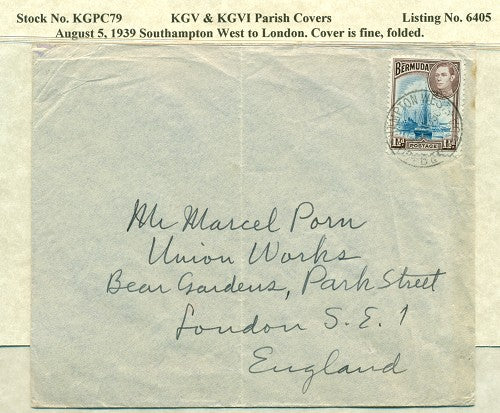 Stock No. KGPC79 KGV & KGVI Parish Covers Listing No. 6405
August 5, 1939 Southampton West to London. Cover is fine, folded.
BERMUDA
1½d POSTAGE 1½d
Mr Marcel Porn
Union Works
Bear Gardens, Park Street
London S. E. 1
England